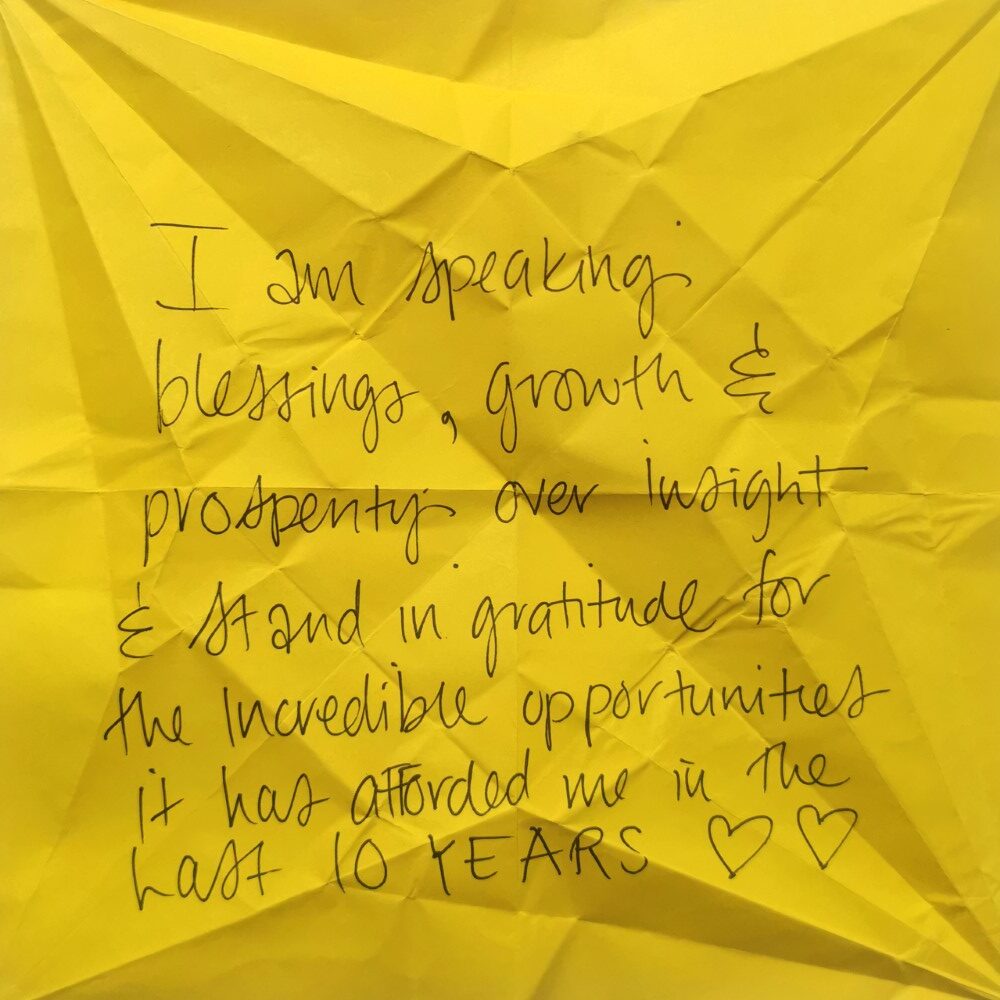 I am speaking
blessings, growth &
prosperity over insight
& stand in gratitude for
the incredible opportunities
it has afforded me in the
last 10 YEARS ♡♡